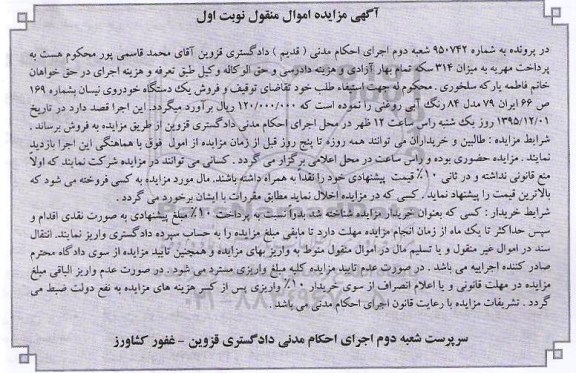 آگهی مزایده اموال منقول نوبت اول
در پرونده به شماره ۹۵۰۷۴۲ شعبه دوم اجرای احکام مدنی ( قدیم ) دادگستری قزوین آقای محمد قاسمی پور محکوم هست به
پرداخت مهریه به میزان ۳۱۴ سکه تمام بهار آزادی و هزینه دادرسی و حق الوکاله وکیل طبق تعرفه و هزینه اجرای در حق خواهان
خانم فاطمه یارکه سلخوری . محکوم له جهت استیفاء طلب خود تقاضای توقیف و فروش یک دستگاه خودروی نیسان بشماره ۱۶۹
ص ۶۶ ایران ۷۹ مدل ۸۴ رنگ آبی روغنی را نموده است که ۱۲۰/۰۰۰/۰۰۰ ریال برآورد میگردد. این اجرا قصد دارد در تاریخ
۱۳۹۵/۱۲/۰۱ روز یک شنبه راس ساعت ۱۲ ظهر در محل اجرای احکام مدنی دادگستری قزوین از طریق مزایده به فروش برساند .
شرایط مزایده : طالبین و خریداران می توانند همه روزه تا پنج روز قبل از زمان مزایده از اموال فوق با هماهنگی این اجرا بازدید
نمایند . مزایده حضوری بوده و راس ساعت در محل اعلامی برگزار می گردد . کسانی می توانند در مزایده شرکت نمایند که اولاً
منع قانونی نداشته و در ثانی ۱۰٪ قیمت پیشنهادی خود را نقداً به همراه داشته باشند. مال مورد مزایده به کسی فروخته می شود که
بالاترین قیمت را پیشنهاد نماید . کسی که در مزایده اخلال نماید مطابق مقررات با ایشان برخورد می گردد .
شرایط خریدار : کسی که بعنوان خریدار مزایده شناخته شد بدواً نسبت به پرداخت ۱۰٪ مبلغ پیشنهادی به صورت نقدی اقدام و
سپس حداکثر تا یک ماه از زمان انجام مزایده مهلت دارد تا مابقی مبلغ مزایده را به حساب سپرده دادگستری واریز نمایند. انتقال
سند در اموال غیر منقول و یا تسلیم مال در اموال منقول منوط به واریز بهای مزایده و همچنین تایید مزایده از سوی دادگاه محترم
صادر کننده اجراییه می باشد . در صورت عدم تایید مزایده کلیه مبلغ واریزی مسترد می شود . در صورت عدم واریز الباقی مبلغ
مزایده در مهلت قانونی و یا اعلام انصراف از سوی خریدار ۱۰٪ واریزی پس از کسر هزینه های مزایده به نفع دولت ضبط می
گردد . تشریفات مزایده با رعایت قانون اجرای احکام مدنی می باشد .
سرپرست شعبه دوم اجرای احکام مدنی دادگستری قزوین - غفور کشاورز